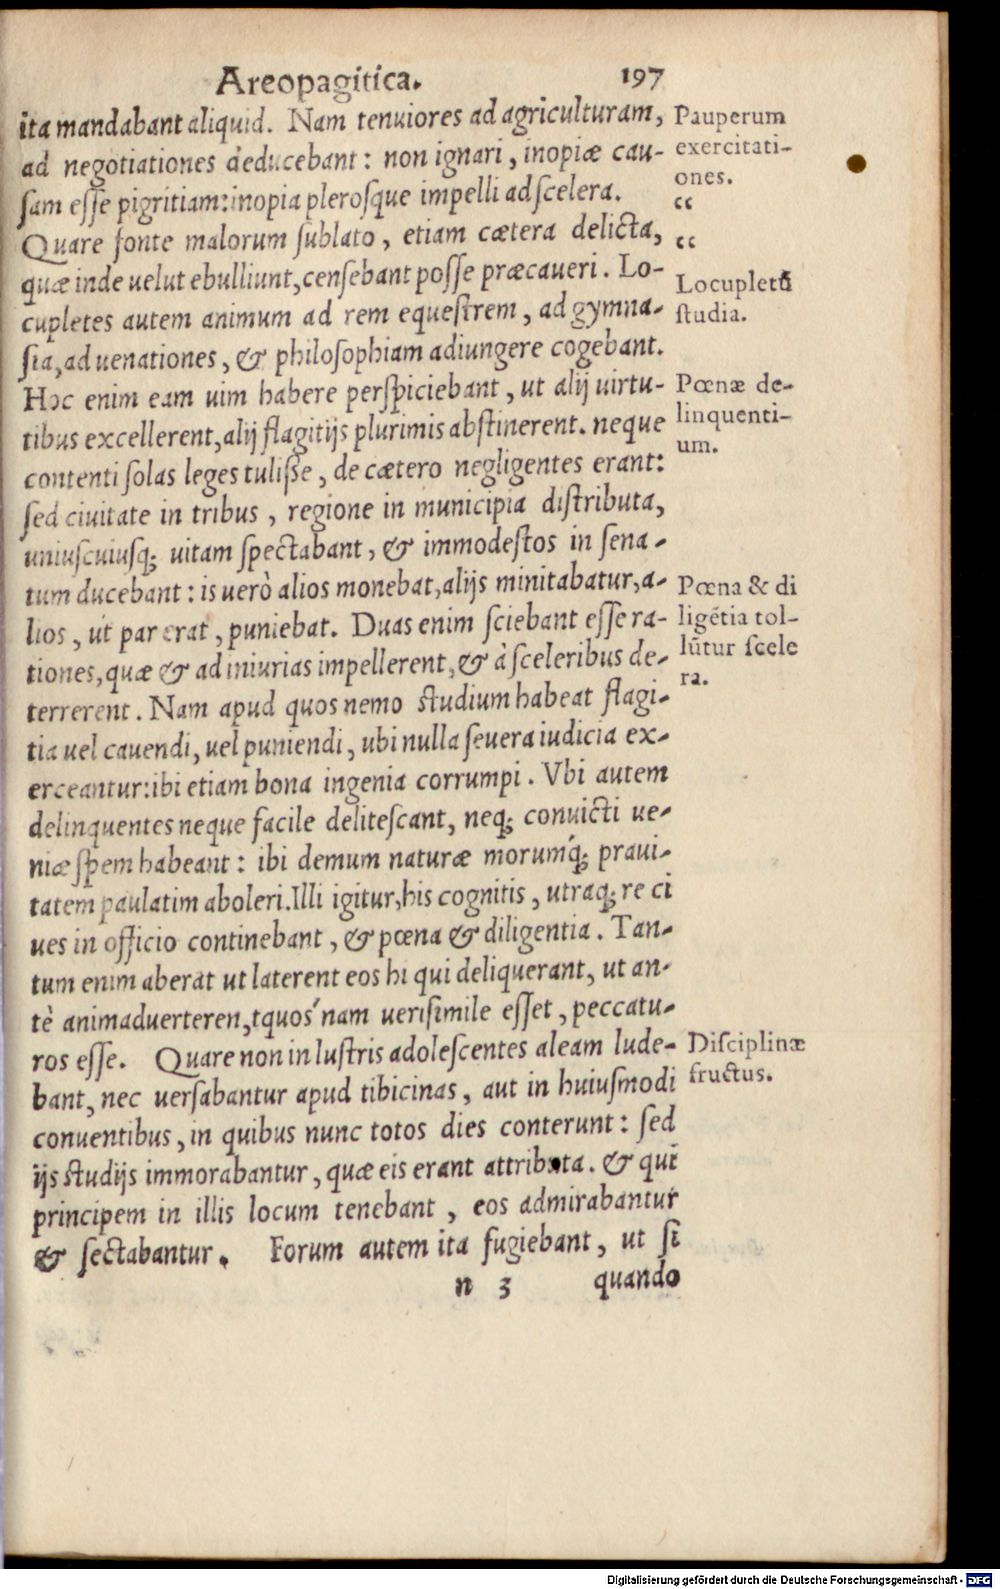 Areopagitica. 197
ita mandabant aliquid. Nam tenuiores ad agriculturam,
ad negotiationes deducebant: non ignari, inopiæ cau-
ſam eſſe pigritiam: inopia pleroſque impelli ad ſcelera.
Quare fonte malorum ſublato, etiam cætera delicta,
quæ inde uelut ebulliunt, cenſebant poſſe præcaueri. Lo-
cupletes autem animum ad rem equeſtrem, ad gymna-
ſia, ad uenationes, & philoſophiam adiungere cogebant.
Hoc enim eam uim habere perſpiciebant, ut alij uirtu-
tibus excellerent, alij flagitijs plurimis abſtinerent. neque
contenti ſolas leges tuliſſe, de cætero negligentes erant:
ſed ciuitate in tribus, regione in municipia diſtributa,
uniuſcuiuſq; uitam ſpectabant, & immodeſtos in ſena-
tum ducebant: is uerò alios monebat, alijs minitabatur, a-
lios, ut par erat, puniebat. Duas enim ſciebant eſſe ra-
tiones, quæ & ad iniurias impellerent, & à ſceleribus de-
terrerent. Nam apud quos nemo ſtudium habeat flagi-
tia uel cauendi, uel puniendi, ubi nulla ſeuera iudicia ex-
erceantur: ibi etiam bona ingenia corrumpi. Vbi autem
delinquentes neque facile deliteſcant, neq; conuicti ue-
niæ ſpem habeant: ibi demum naturæ morumq́; praui-
tatem paulatim aboleri. Illi igitur, his cognitis, utraq; re ci
ues in officio continebant, & pœna & diligentia. Tan-
tum enim aberat ut laterent eos hi qui deliquerant, ut an-
tè animaduerteren,tquos ́nam ueriſimile eſſet, peccatu-
ros eſſe. Quare non in luſtris adoleſcentes aleam lude-
bant, nec uerſabantur apud tibicinas, aut in huiuſmodi
conuentibus, in quibus nunc totos dies conterunt: ſed
ijs ſtudijs immorabantur, quæ eis erant attributa. & qui
principem in illis locum tenebant, eos admirabantur
& ſectabantur. Forum autem ita fugiebant, ut ſi
n 3 quando
Pauperum
exercitati-
ones.
“
“
Locupletũ
ſtudia.
Pœnæ de-
linquenti-
um.
Pœna & di
ligẽtia tol-
lũtur ſcele
ra.
Diſciplinæ
fructus.
Digitalisierung gefördert durch die Deutsche Forschungsgemeinschaft - DFG